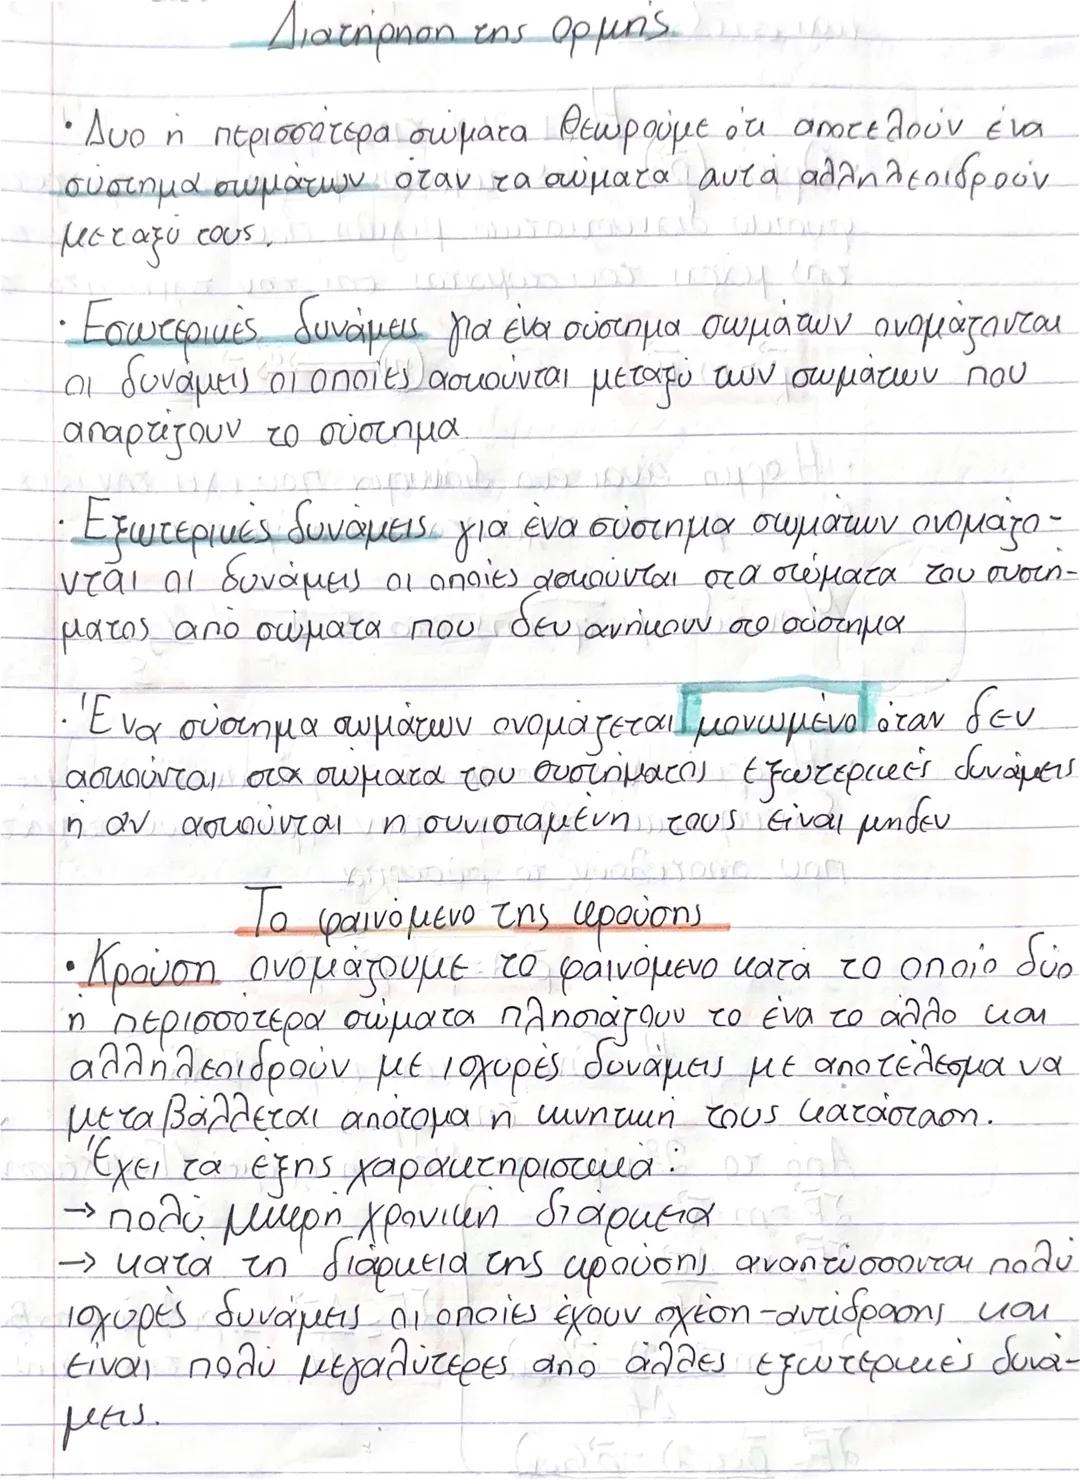 Διατήρηση της ορμής
· Δυο ή περισσότερα σώματα θεωρούμε ότι αποτελούν ένα
σύστημα σωμάτων όταν τα σώματα αυτά αλληλεπιδρούν
μεταξύ τους.
· Εσωτερικές δυνάμεις για ένα σύστημα σωμάτων ονομάζονται
οι δυνάμεις οι οποίες ασκούνται μεταξύ των σωμάτων που
απαρτίζουν το σύστημα
· Εξωτερικές δυνάμεις για ένα σύστημα σωμάτων ονομάζο-
νται οι δυνάμεις οι οποίες ασκούνται στα σώματα του συστή-
ματος από σώματα που δεν ανήκουν στο σύστημα
· Ένα σύστημα σωμάτων ονομάζεται μονωμένο όταν δεν
ασκούνται στα σώματα του συστήματος εξωτερικές δυνάμεις
ή αν ασκούνται η συνισταμένη τους είναι μηδεν
Το φαινόμενο της κρούσης
· Κρούση ονομάζουμε το φαινόμενο κατά το οποίο δύο
ή περισσότερα σώματα πλησιάζουν το ένα το άλλο και
αλληλεπιδρούν με ισχυρές δυνάμεις με αποτέλεσμα να
μεταβάλλεται απότομα η κινητική τους κατάσταση.
Έχει τα εξής χαρακτηριστικά:
→ πολύ μικρή χρονική διάρκεια
→ κατά τη διάρκεια της κρούσης αναπτύσσονται πολύ
ισχυρές δυνάμεις οι οποίες έχουν σχέση-αντίδρασης και
είναι πολύ μεγαλύτερες από άλλες εξωτερικές δυνά-
μεις.